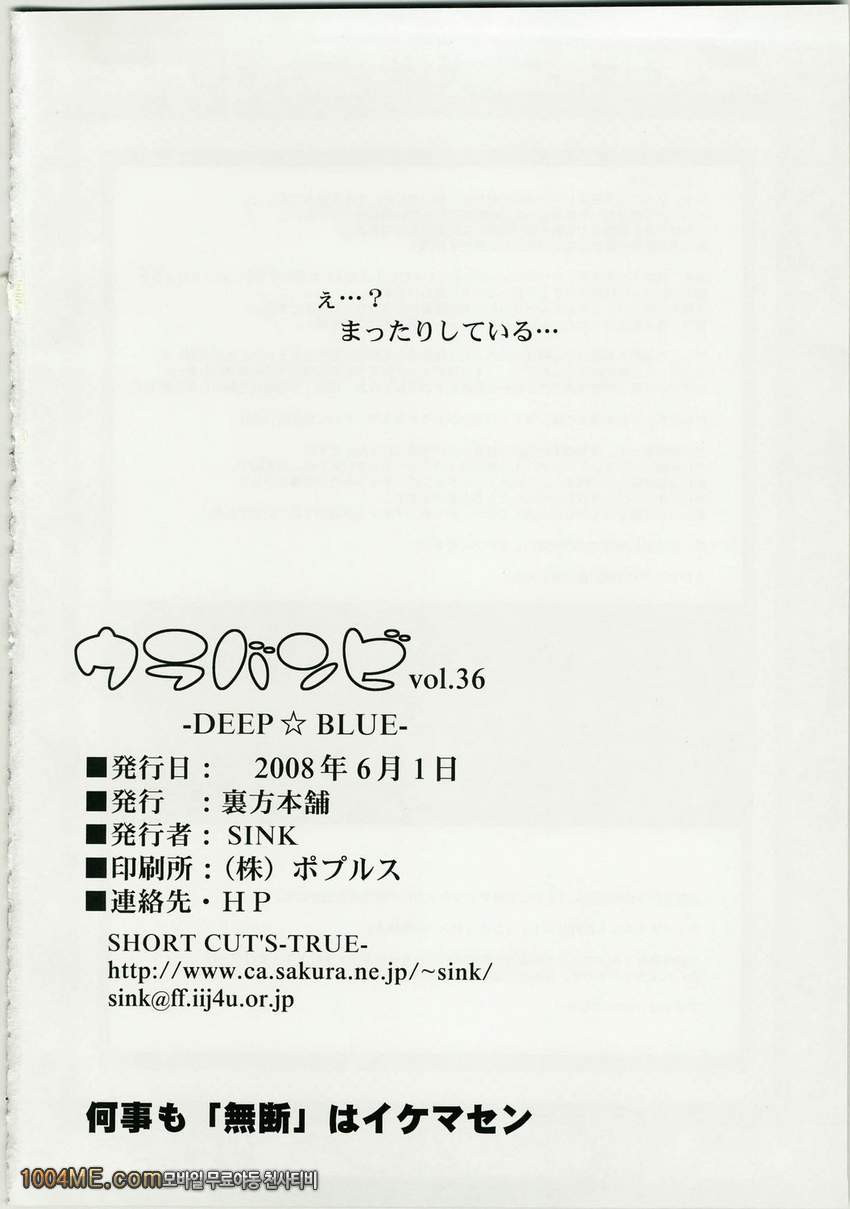 ぇ…?
まったりしている…
ウラバンビ vol.36
-DEEP☆BLUE-
■発行日： 2008年6月1日
■発行　：裏方本舗
■発行者： SINK
■印刷所：（株）ポプルス
■連絡先・HP
SHORT CUT'S-TRUE-
http://www.ca.sakura.ne.jp/~sink/
sink@ff.iij4u.or.jp
何事も「無断」はイケマセン
1004ME.com모바일 무료야동 천사티비